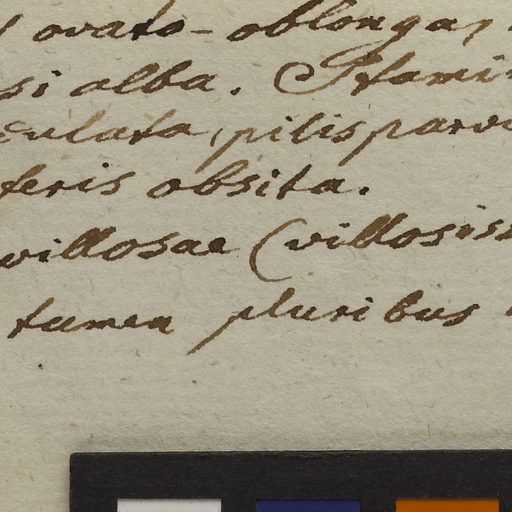 ovato-oblonga,
si alba. Stami
culata, pilis parvi
feris obsita.
villosae (villosiss
tumea pluribus